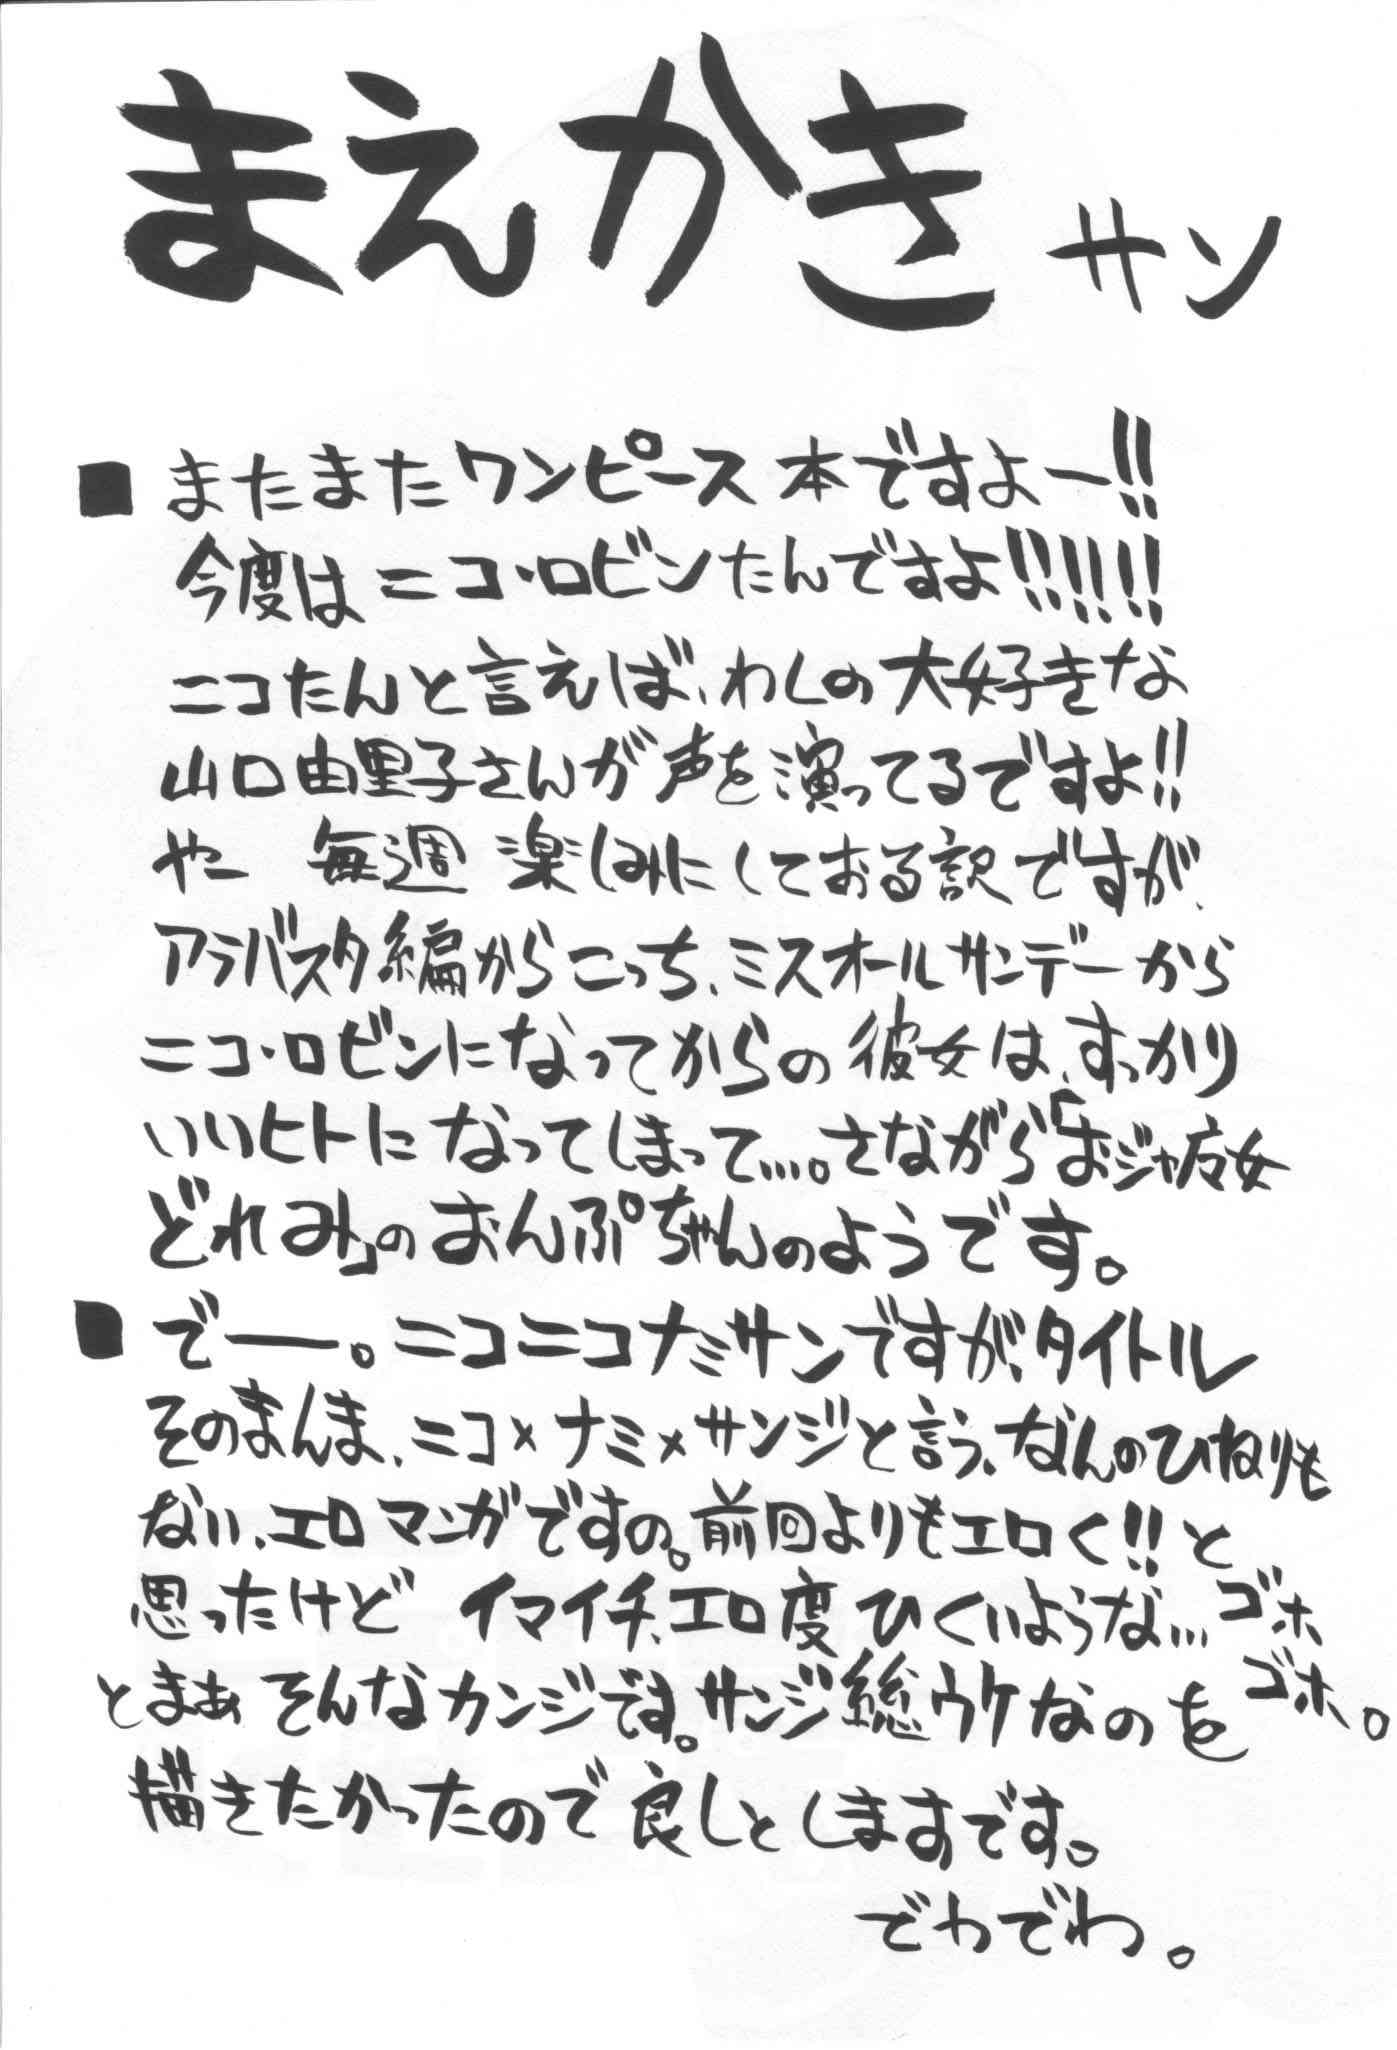 まえかき サン
■ またまたワンピース本ですよー!!
今度はニコ・ロビンたんですよ!!!!!!
ニコたんと言えば、わしの大好きな
山口由里子さんが声を演ってるですよ!!
やー 毎週楽しみにしておる訳ですが、
アラバスタ編からこっち、ミスオールサンデーから
ニコ・ロビンになってからの彼女は、すっかり
いいヒトになってしまって…。さながら「おジャ魔女
どれみ」のおんぷちゃんのようです。
■ でー。ニコニコナミサンですが、タイトル
そのまんま、ニコ×ナミ×サンジと言う、なんのひねりも
ない、エロマンガですの。前回よりもエロく!!と
思ったけど イマイチ、エロ度ひくいような…ゴホ
ゴホ。
とまぁそんなカンジです。サンジ総ウケなのを
描きたかったので良しとしますです。
でわでわ。